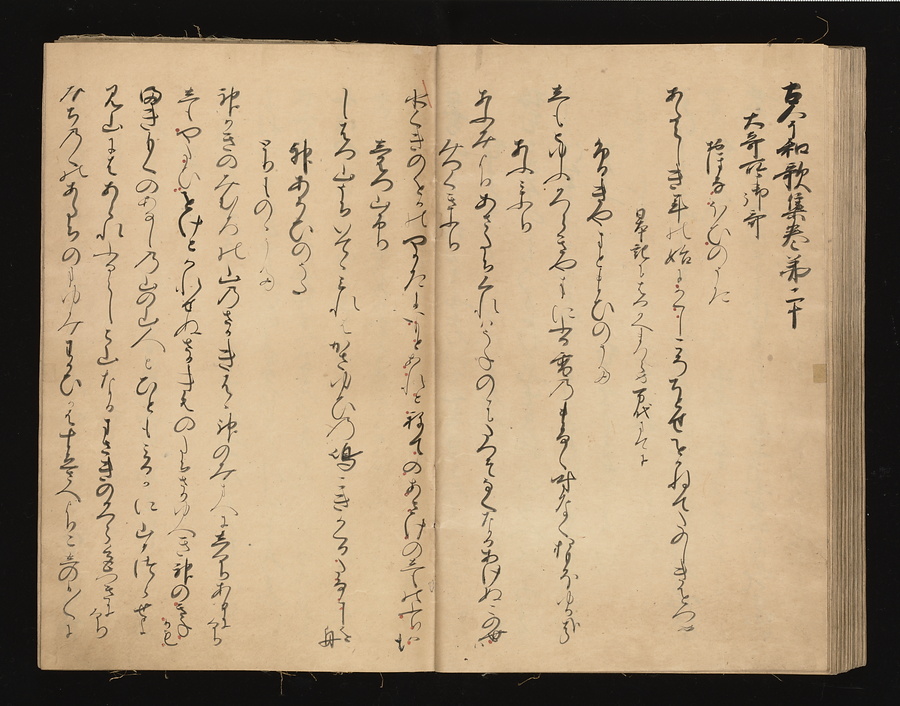 古今和歌集巻第二十
大哥所御哥
おほなほひのうた
あたらしき年の始にかくしこそちとせをかねてたのしきをつめ
日本紀にはつかへまつらめ万代まてに
ふるきやまとまひのうた
しもとゆふかつらきやまにふる雪のまなく時なくおもほゆる
あふみふり
あふみよりあさたちくれはうねのゝにたつそなくなるあけぬこの世は
みつくきふり
水くきのをかのやかたにいもとあれとねてのあさけのしものふりはも
しはつ山ふり
しはつ山うちいてゝみれはかさゆひの嶋こきかくるたなゝしを舟
神あそひのうた
とりものゝうた
神かきのみむろの山のさかきはゝ神のみまへにしけりあひにけり
しもやたひをけとかれせぬさかきはのたちさかゆへき神のきねかも
まきもくのあなしの山の山人とひともみるかに山かつらせよ
み山にはあられふるらしと山なるまさきのかつら色つきにけり
みちのくのあたちのまゆみわかひかはすゑさへよりこしのひ〳〵に